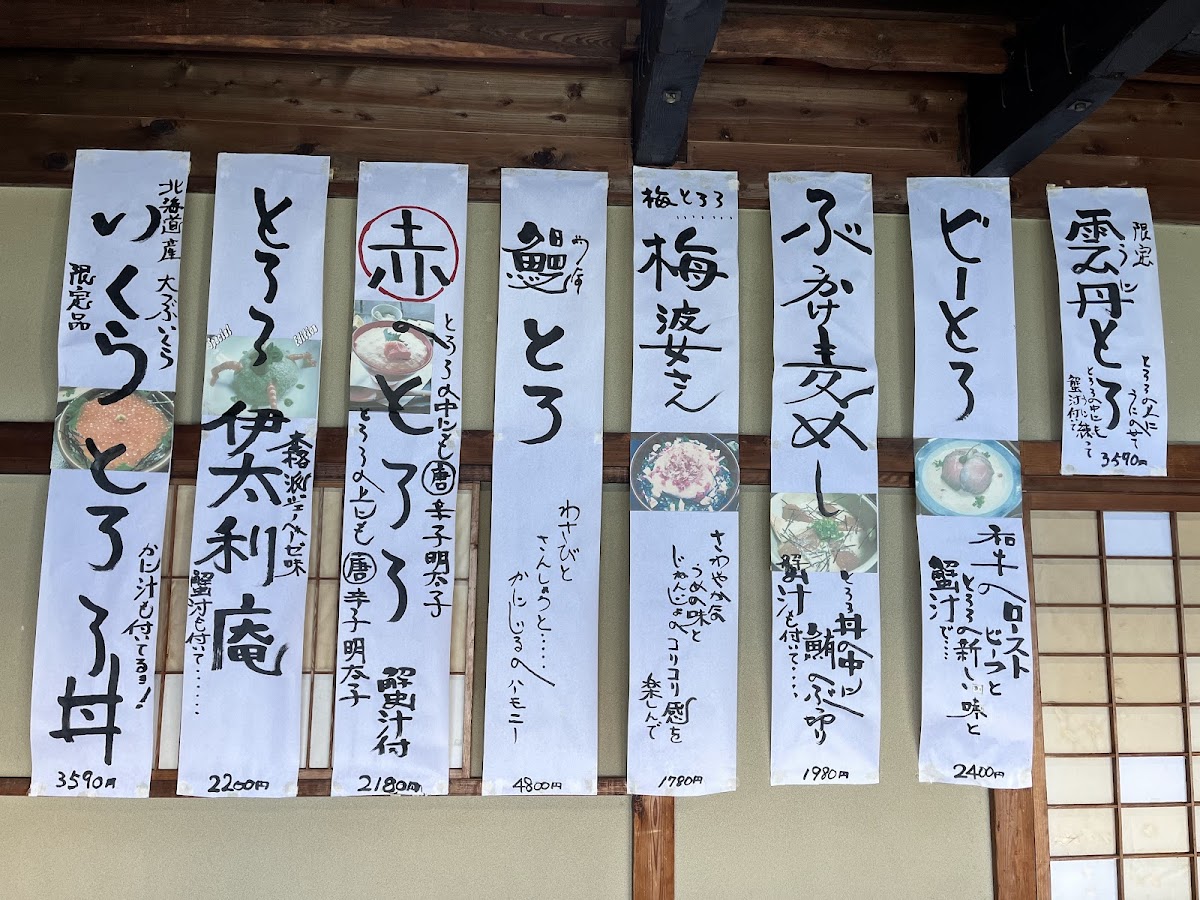 限定
うに
雲丹とろ
とろろの上に
うにのせて
とろろの中にも
うに練って
蟹汁付で
3590円
ビーとろ
和牛の
ロースト
ビーフと
とろろの新しい味と
蟹汁で....
2400円
ぶっかけ麦めし
とろろ丼の中に
鮪のぶつ切り
蟹汁も付いて....
1980円
梅とろろ.......
梅婆さん
さわやかな
うめの味と
じねんじょのコリコリ感を
楽しんで
1780円
鰻とろ
わさびと
さんしょうと....
かにじるのハーモニー
4800円
赤のとろろ
とろろの中にも唐辛子明太子
とろろの上にも唐辛子明太子
蟹汁付
2180円
とろろ伊太利庵
本格派ジェノベーゼ味
蟹汁も付いて......
2200円
北海道産 大つぶいくら
いくらとろろ丼
限定品
かに汁も付いてるョ!
3590円